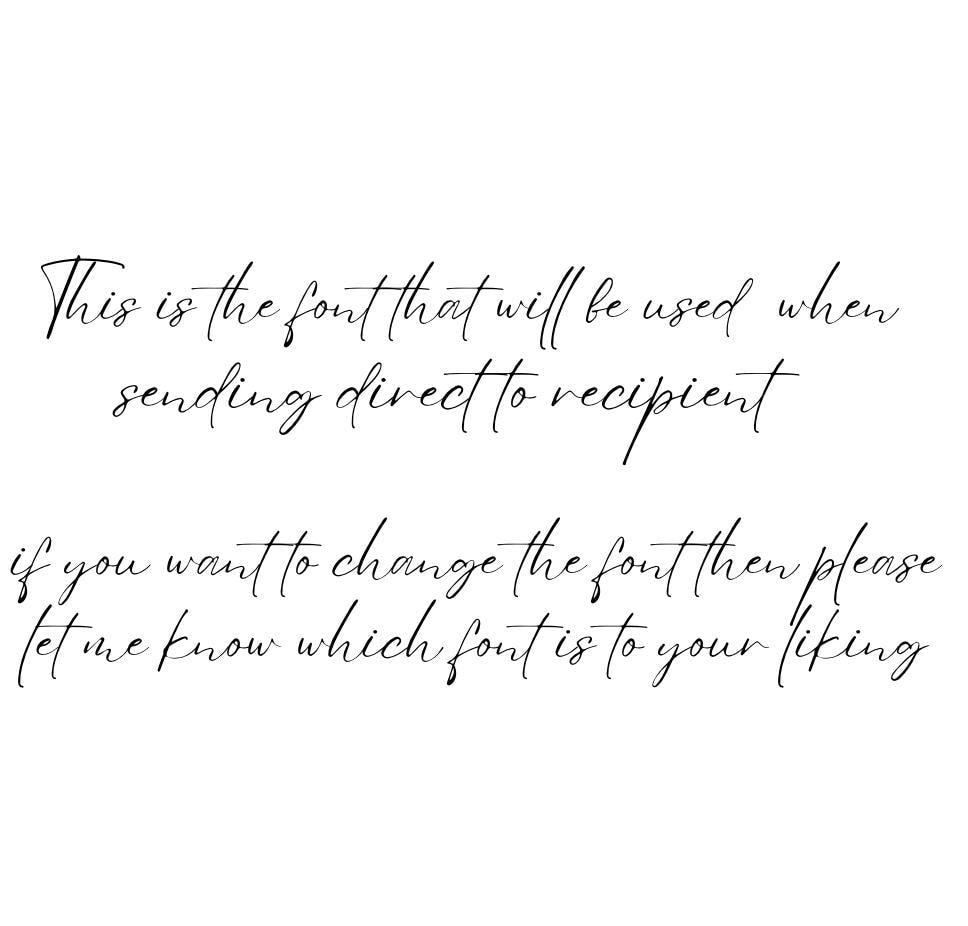 This is the font that will be used when
sending direct to recipient
if you want to change the font then please
let me know which font is to your liking